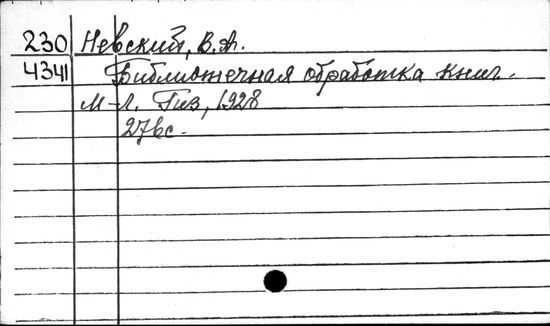 230 Невский, В.А.
4341 Библиотечная обработка книг.
М-Л. Гиз, 1928
276с.